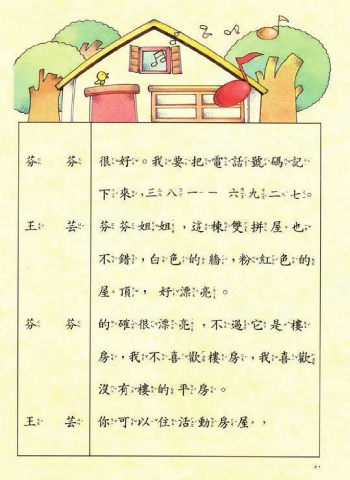 芬芬 很好。我要把電話號碼記
下來,三八一一六九二七。
王芸 芬芬姐姐,這棟雙拼屋也
不錯,白色的牆,粉紅色的
屋頂,好漂亮。
芬芬 的確很漂亮,不過它是樓
房,我不喜歡樓房,我喜歡
沒有樓的平房。
王芸 你可以住活動房屋,